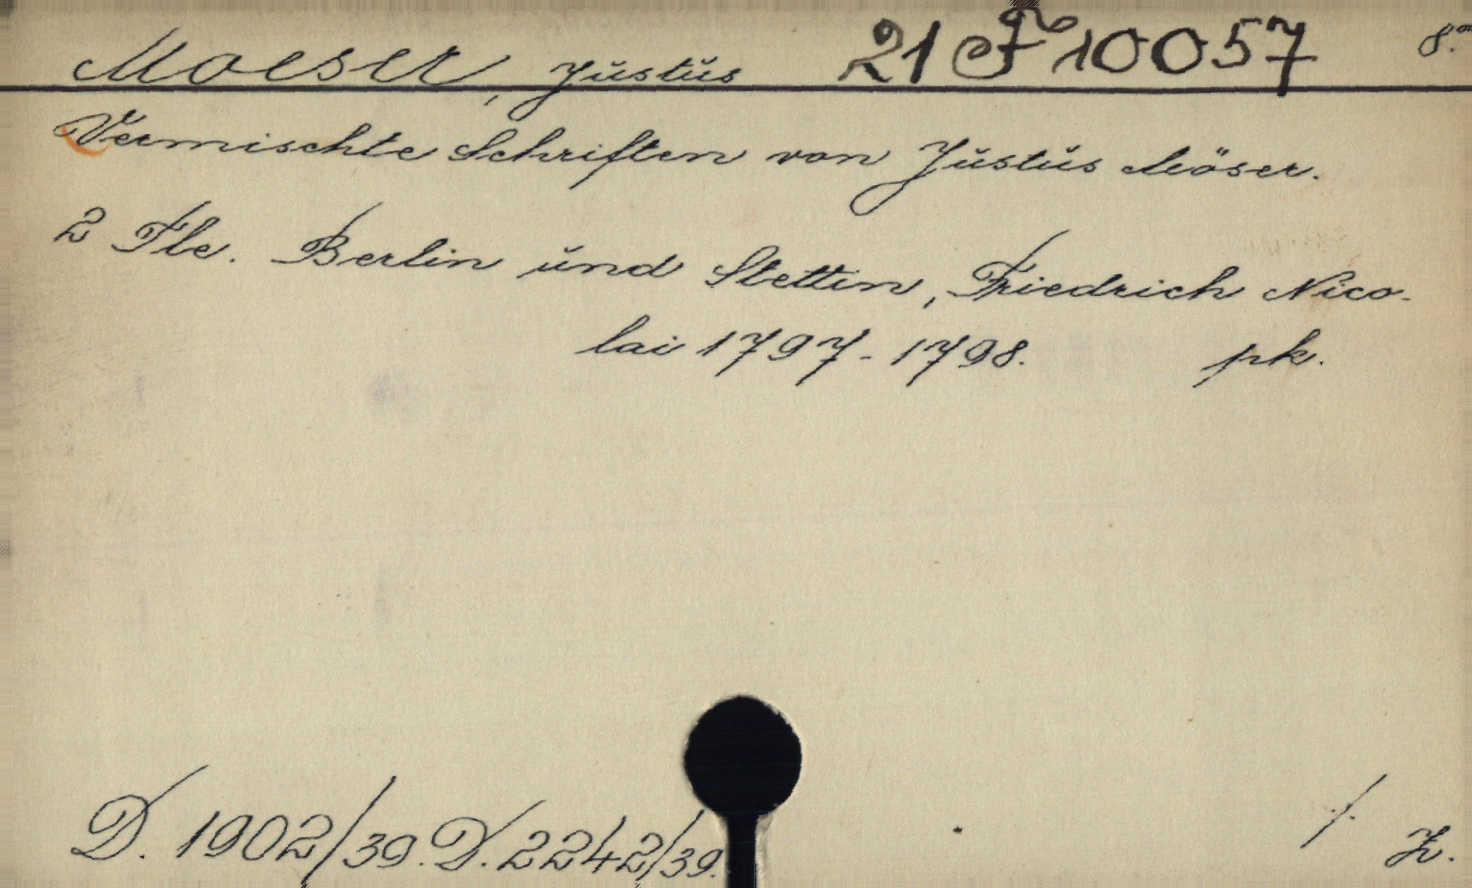 Moeser, Justus 21 F 10057 8.°
Vermischte Schriften von Justus Möser.
2 Tle. Berlin und Stettin, Friedrich Nico-
lai 1797-1798. pk.
D. 1902/39. D. 2242/39. ./. Z.